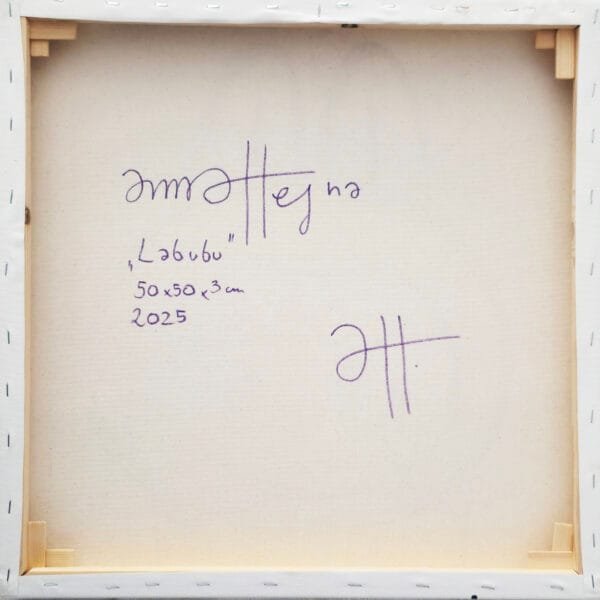 anna Hejna
„Labubu"
50x50x3 cm
2025
aH.